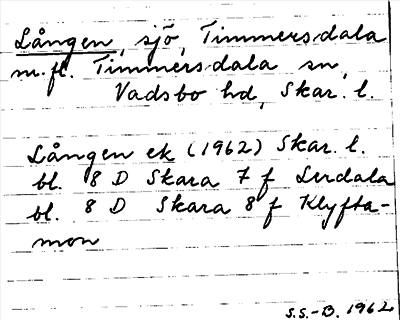 Lången, sjö, Timmersdala
m.fl. Timmersdala sn,
Vadsbo hd, Skar. l.
Lången ek (1962) Skar. l.
bl. 8 D Skara 7 f Lerdala
bl. 8 D Skara 8 f Klyfta-
mon
S.S.-B. 1962